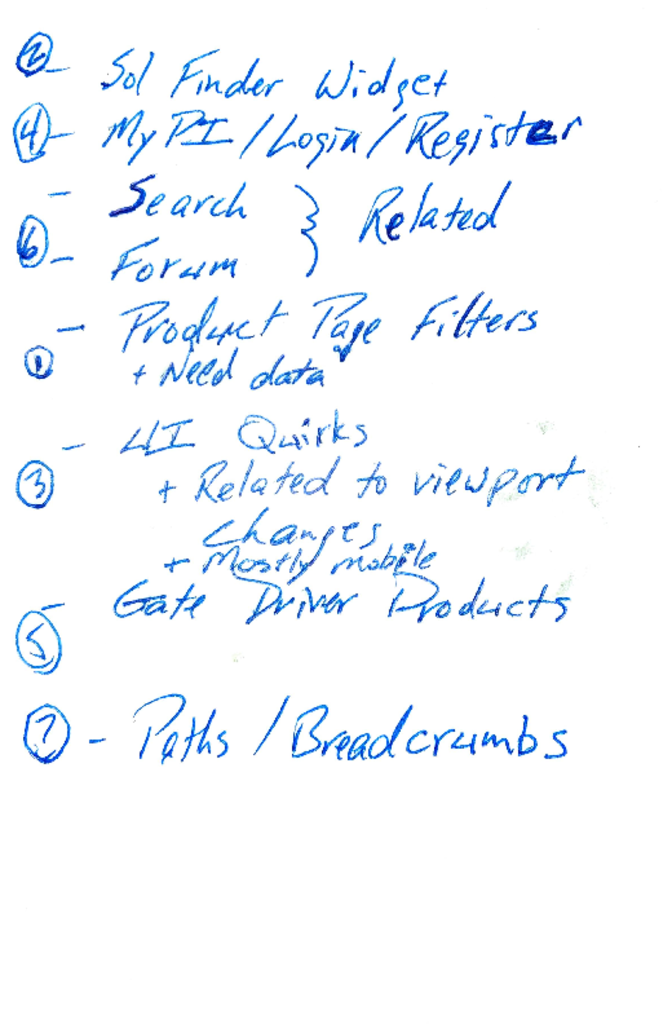 ② - Sol Finder Widget
④ - My PI / Login / Register
- Search } Related
⑥ - Forum
- Product Page Filters
① + Need data
- UI Quirks
③ + Related to viewport
changes
+ Mostly mobile
- Gate Driver Products
⑤
⑦ - Paths / Breadcrumbs